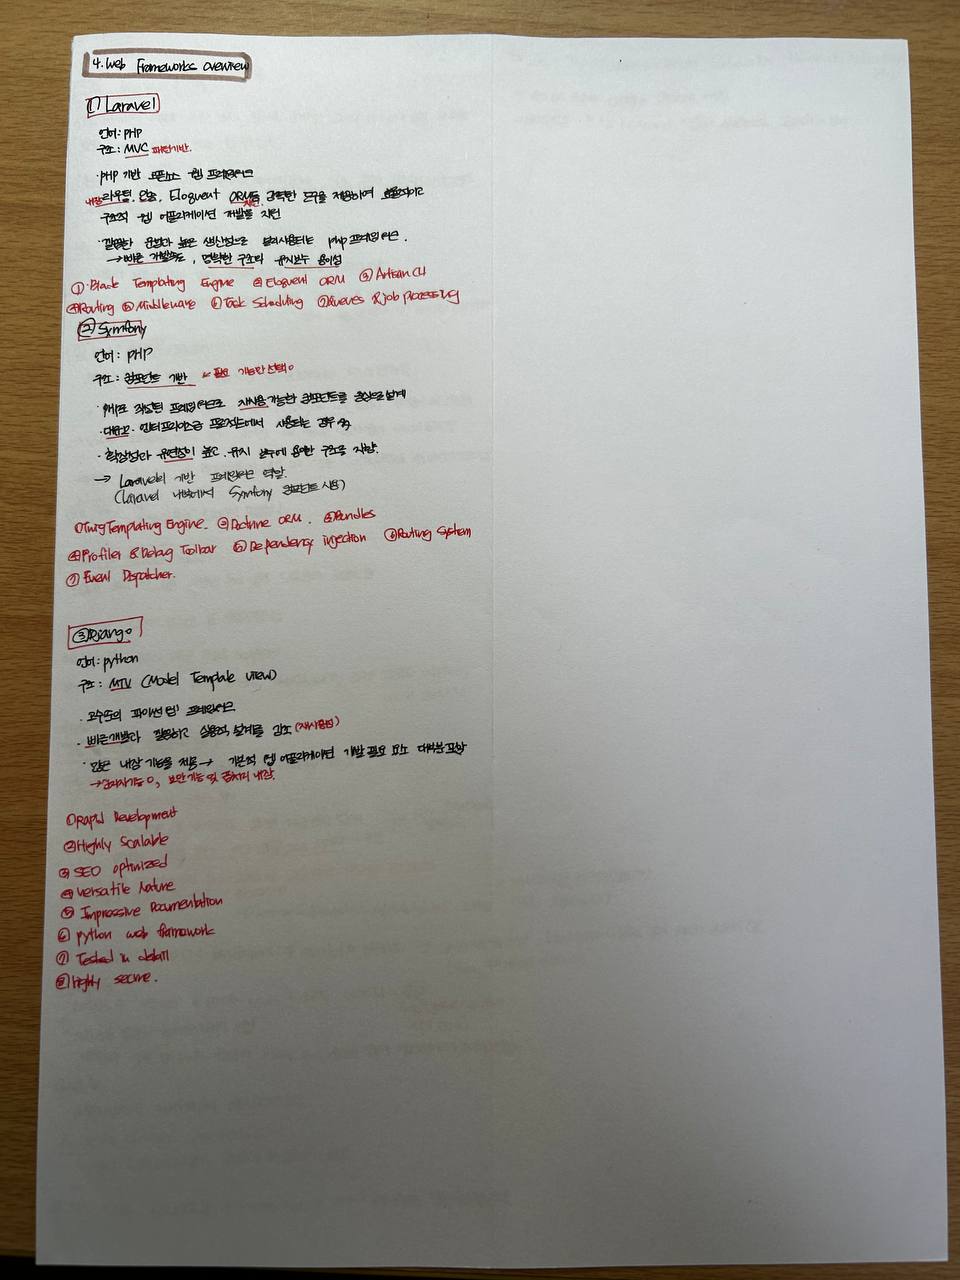 4. Web Frameworks overview
① Laravel
언어: PHP
구조: MVC 패턴기반.
· PHP 기반 오픈소스 웹 프레임워크
내장 라우팅, 인증, Eloquent ORM등 강력한 도구를 제공하여 효율적이고
구조적 웹 어플리케이션 개발을 지원
· 간결한 문법과 높은 생산성으로 널리사용되는 php 프레임워크.
→ 빠른 개발속도, 명확한 구조와 유지보수 용이성
① Blade Templating Engine ② Eloquent ORM ③ Artisan CLI
④ Routing ⑤ Middleware ⑥ Task Scheduling ⑦ Queues & job processing
② Symfony
언어: PHP
구조: 컴포넌트 기반 ← 필요 기능만 선택o
· PHP로 작성된 프레임워크로 재사용 가능한 컴포넌트를 중심으로 설계
· 대규모· 엔터프라이즈급 프로젝트에서 사용되는 경우 多
· 확장성과 유연성이 높고, 유지 보수에 용이한 구조를 지향.
→ Laravel의 기반 프레임워크 역할.
(laravel 내부에서 Symfony 컴포넌트 사용)
① Twig Templating Engine. ② Doctrine ORM. ③ Bundles
④ Profiler & Debug Toolbar ⑤ Dependency injection ⑥ Routing System
⑦ Event Dispatcher.
③ Django
언어: python
구조: MTV (Model Template View)
· 고수준의 파이썬 웹 프레임워크
· 빠른개발과 깔끔하고 실용적 설계를 강조 (재사용성)
· 많은 내장 기능을 제공 → 기본적 웹 어플리케이션 개발 필요 요소 대부분 포함
→ 관리자기능 O, 보안 기능 및 내장.
① Rapid Development
② Highly Scalable
③ SEO optimized
④ Versatile Nature
⑤ Impressive Documentation
⑥ python web framework
⑦ Tested in detail
⑧ Highly secure.